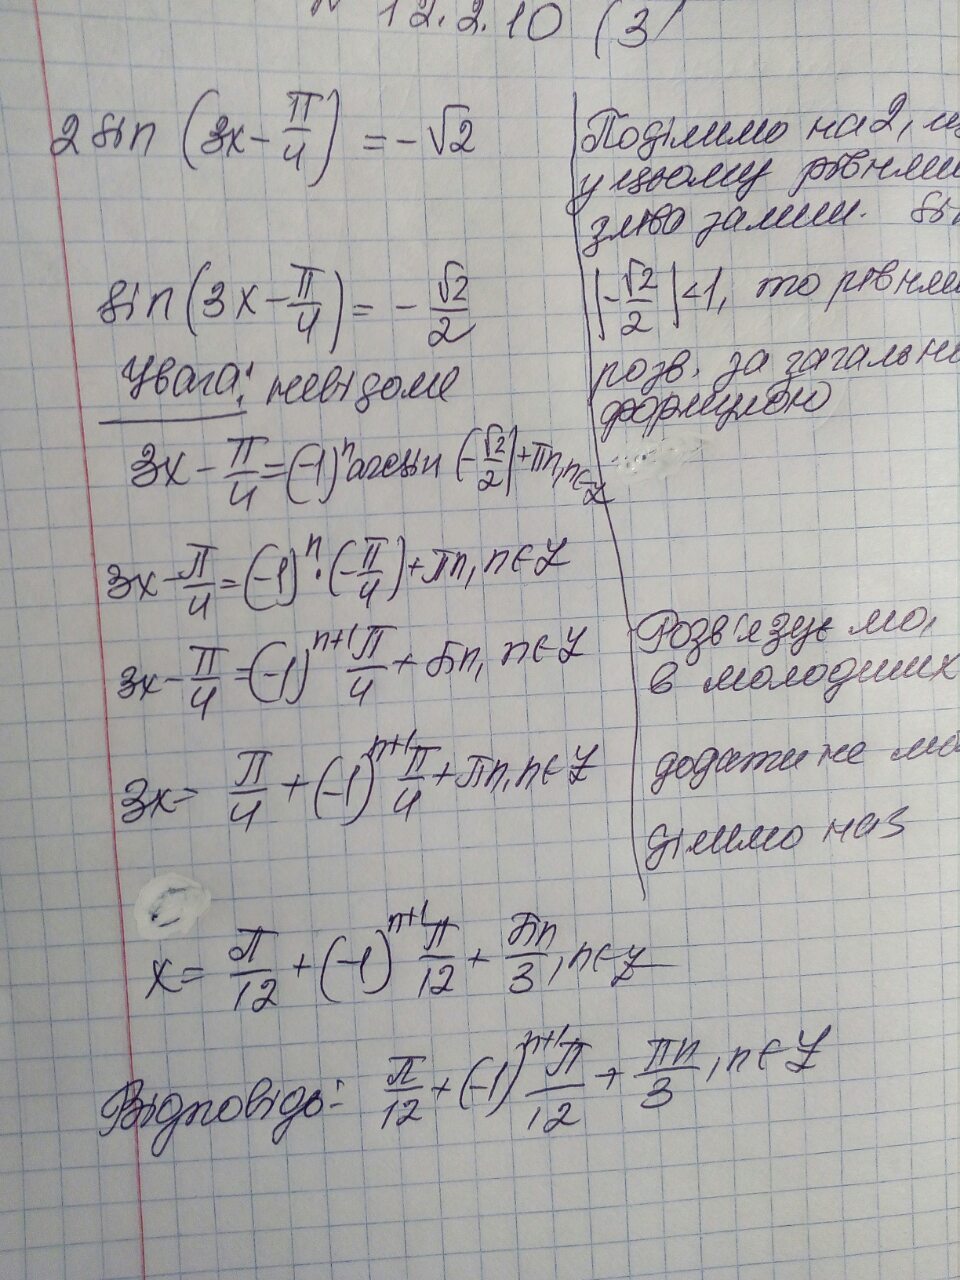 N 12.2.10 (3)
2 sin (3x - π/4) = - √2
sin (3x - π/4) = - √2/2
Увага: невідоме
3x - π/4 = (-1)^n arcsin (-√2/2) + πn, n∈Z
3x - π/4 = (-1)^n · (-π/4) + πn, n∈Z
3x - π/4 = (-1)^(n+1) π/4 + πn, n∈Z
3x = π/4 + (-1)^(n+1) π/4 + πn, n∈Z
x = π/12 + (-1)^(n+1) π/12 + πn/3, n∈Z
Відповідь: π/12 + (-1)^(n+1) π/12 + πn/3, n∈Z
Поділимо на 2,
у цьому
зліва
|-√2/2| < 1, то
розв. за
формулою
Розв'язуємо,
в молодших
додати не
ділимо на 3